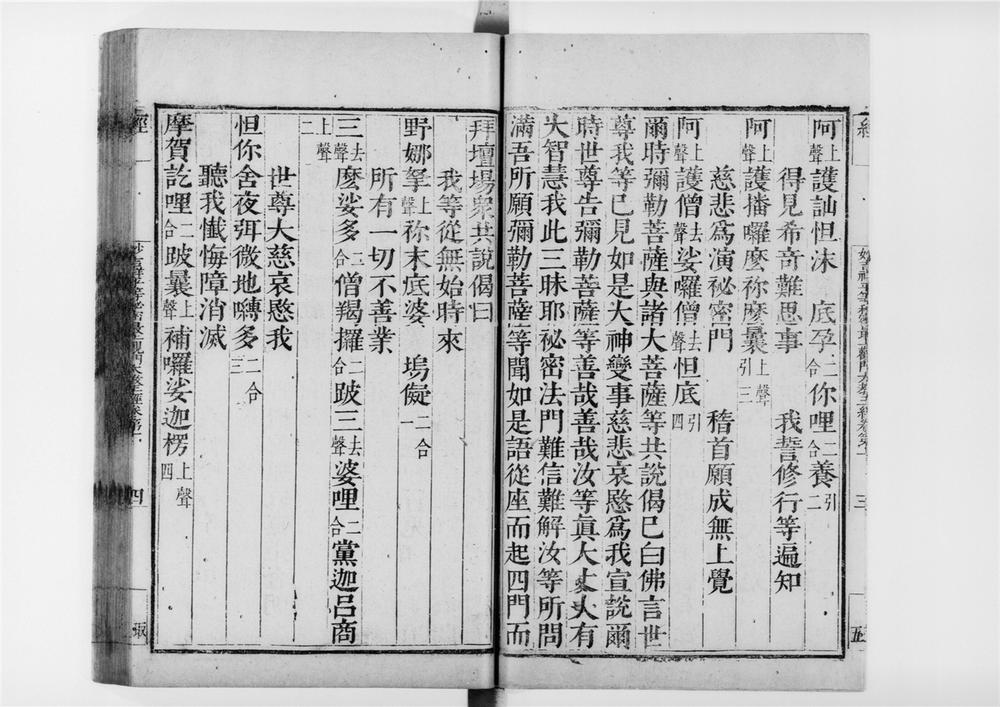 阿上聲護訕怛沫　底孕二合你哩二合養引二
得見希奇難思事　我誓修行等遍知
阿上聲護播囉麼祢麼曩上聲引三
慈悲爲演祕密門　稽首願成無上覺
阿上聲護僧去聲娑囉僧去聲怛底引四
爾時彌勒菩薩與諸大菩薩等共說偈已白佛言世
尊我等已見如是大神變事慈悲哀愍爲我宣說爾
時世尊告彌勒菩薩等善哉善哉汝等眞大丈夫有
大智慧我此三昧耶祕密法門難信難解汝等所問
滿吾所願彌勒菩薩等聞如是語從座而起四門而
拜壇場衆共說偈曰
我等從無始時來
野娜拏上聲祢末底婆　塢儗二合一
所有一切不善業
三去聲麼娑多二合僧羯攞二合跛三去聲婆哩二合黨迦呂商上聲二
世尊大慈哀愍我
怛你舍夜弭微地囀多二合三
聽我懺悔障消滅
摩賀訖哩二合跛曩上聲補囉娑迦楞上聲四
經
四
三
五